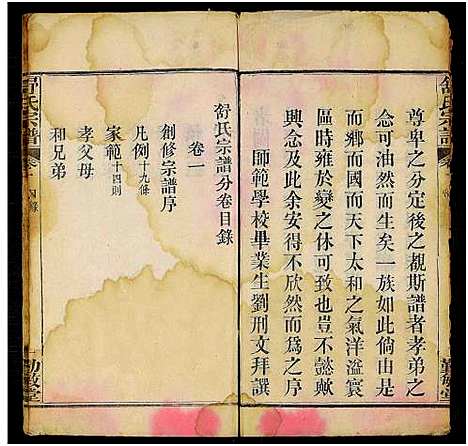 舒氏宗譜
尊卑之分定後之覩斯譜者孝弟之
念可油然而生矣一族如此倘由是
而鄉而國而天下太和之氣洋溢寰
區時雍於變之休可致也豈不懿歟
興念及此余安得不欣然而為之序
師範學校畢業生劉刑文拜譔
勤敏堂
舒氏宗譜分卷目錄
卷一
創修宗譜序
凡例十九條
家範十四則
孝父母
和兄弟
舒氏宗譜
卷一
目錄
一
勤敏堂